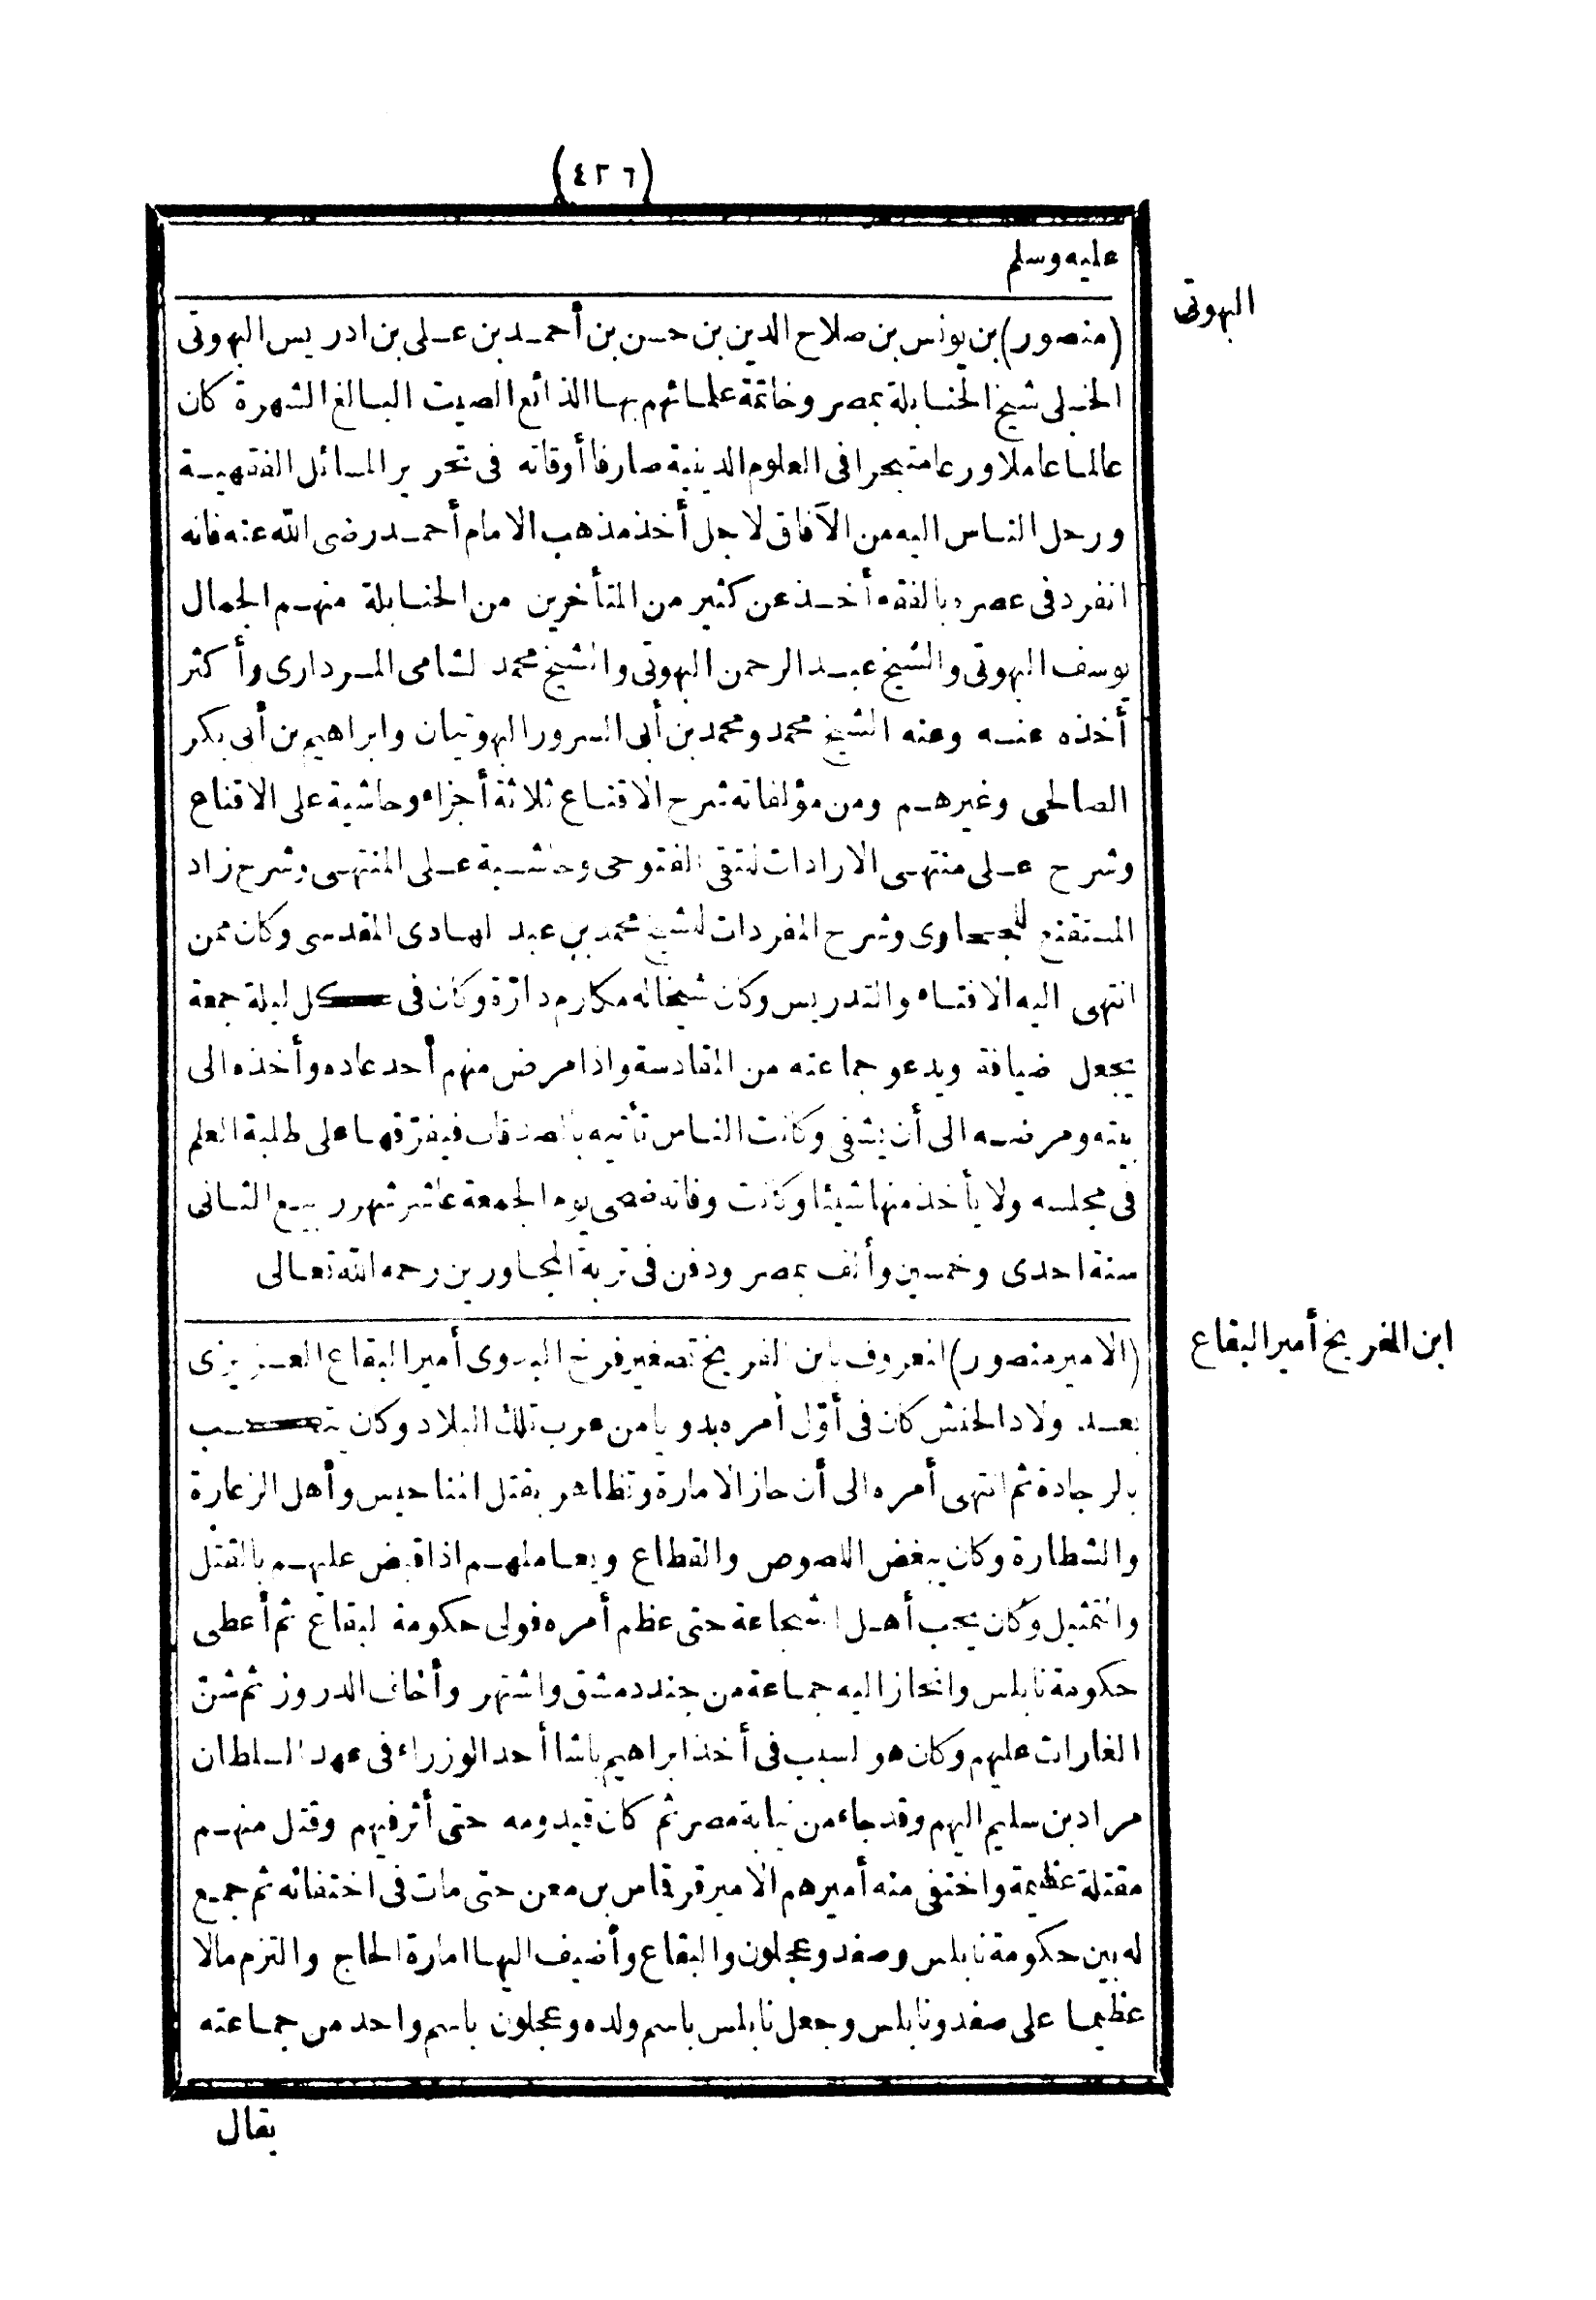 (٤٢٦)
عليه وسلم
البهوتى
(منصور) بن يونس بن صلاح الدين بن حسن بن أحمد بن على بن ادريس البهوتى
الحنبلى شيخ الحنابلة بمصر وخاتمة علمائهم بها الذائع الصيت البالغ الشهرة كان
عالما عاملا ورعا متبحرا فى العلوم الدينية صارفا أوقاته فى تحرير المسائل الفقهية
ورحل الناس اليه من الآفاق لاجل أخذ مذهب الامام أحمد رضى الله عنه فانه
انفرد فى عصره بالفقه أخذ عن كثير من المتأخرين من الحنابلة منهم الجمال
يوسف البهوتى والشيخ عبد الرحمن البهوتى والشيخ محمد الشامى المرداوى وأكثر
أخذه عنه وعنه الشيخ محمد ومحمد بن أبى السرور البهوتيان وابراهيم بن أبى بكر
الصالحى وغيرهم ومن مؤلفاته شرح الاقناع ثلاثة أجزاء وحاشية على الاقناع
وشرح على منتهى الارادات للتقى الفتوحى وحاشية على المنتهى وشرح زاد
المستقنع للحجاوى وشرح المفردات للشيخ محمد بن عبد الهادى المقدسى وكان ممن
انتهى اليه الافتاء والتدريس وكان شيخا له مكارم دارّة وكان فى كل ليلة جمعة
يجعل ضيافة ويدعو جماعته من المقادسة واذا مرض منهم أحد عاده وأخذه الى
بيته ومرضه الى أن يشفى وكانت الناس تأتيه بالصدقات فيفرّقها على طلبة العلم
فى مجلسه ولا يأخذ منها شيئا وكانت وفاته ضحى يوم الجمعة عاشر شهر ربيع الثانى
سنة احدى وخمسين وألف بمصر ودفن فى تربة المجاورين رحمه الله تعالى
ابن الفريخ أمير البقاع
(الامير منصور) المعروف بابن الفريخ تصغير فرخ البدوى أمير البقاع العزيزى
بعد أولاد الحنش كان فى أوّل أمره بدويا من عرب تلك البلاد وكان
ثم انتهى أمره الى أن حاز الامارة وتظاهر بقتل المناحيس وأهل الزعارة
والشطارة وكان يبغض اللصوص والقطاع ويعاملهم اذا قبض عليهم بالقتل
والتمثيل وكان يحب أهل الشجاعة حتى عظم أمره فولى حكومة البقاع ثم أعطى
حكومة نابلس وانحاز اليه جماعة من جند دمشق واشتهر وأخاف الدروز ثم شنّ
الغارات عليهم وكان هو السبب فى أخذ ابراهيم باشا أحد الوزراء فى عهد السلطان
مراد بن سليم اليهم وقد جاء من نيابة مصر ثم كان قيدومه حتى أثر فيهم وقتل منهم
مقتلة عظيمة واختفى منه أميرهم الامير قرقاس بن معن حتى مات فى اختفائه ثم جمع
له بين حكومة نابلس وصفد وعجلون والبقاع وأضيف اليها امارة الحاج والتزم مالا
عظيما على صفد ونابلس وجعل نابلس باسم ولده وعجلون باسم واحد من جماعته
يقال